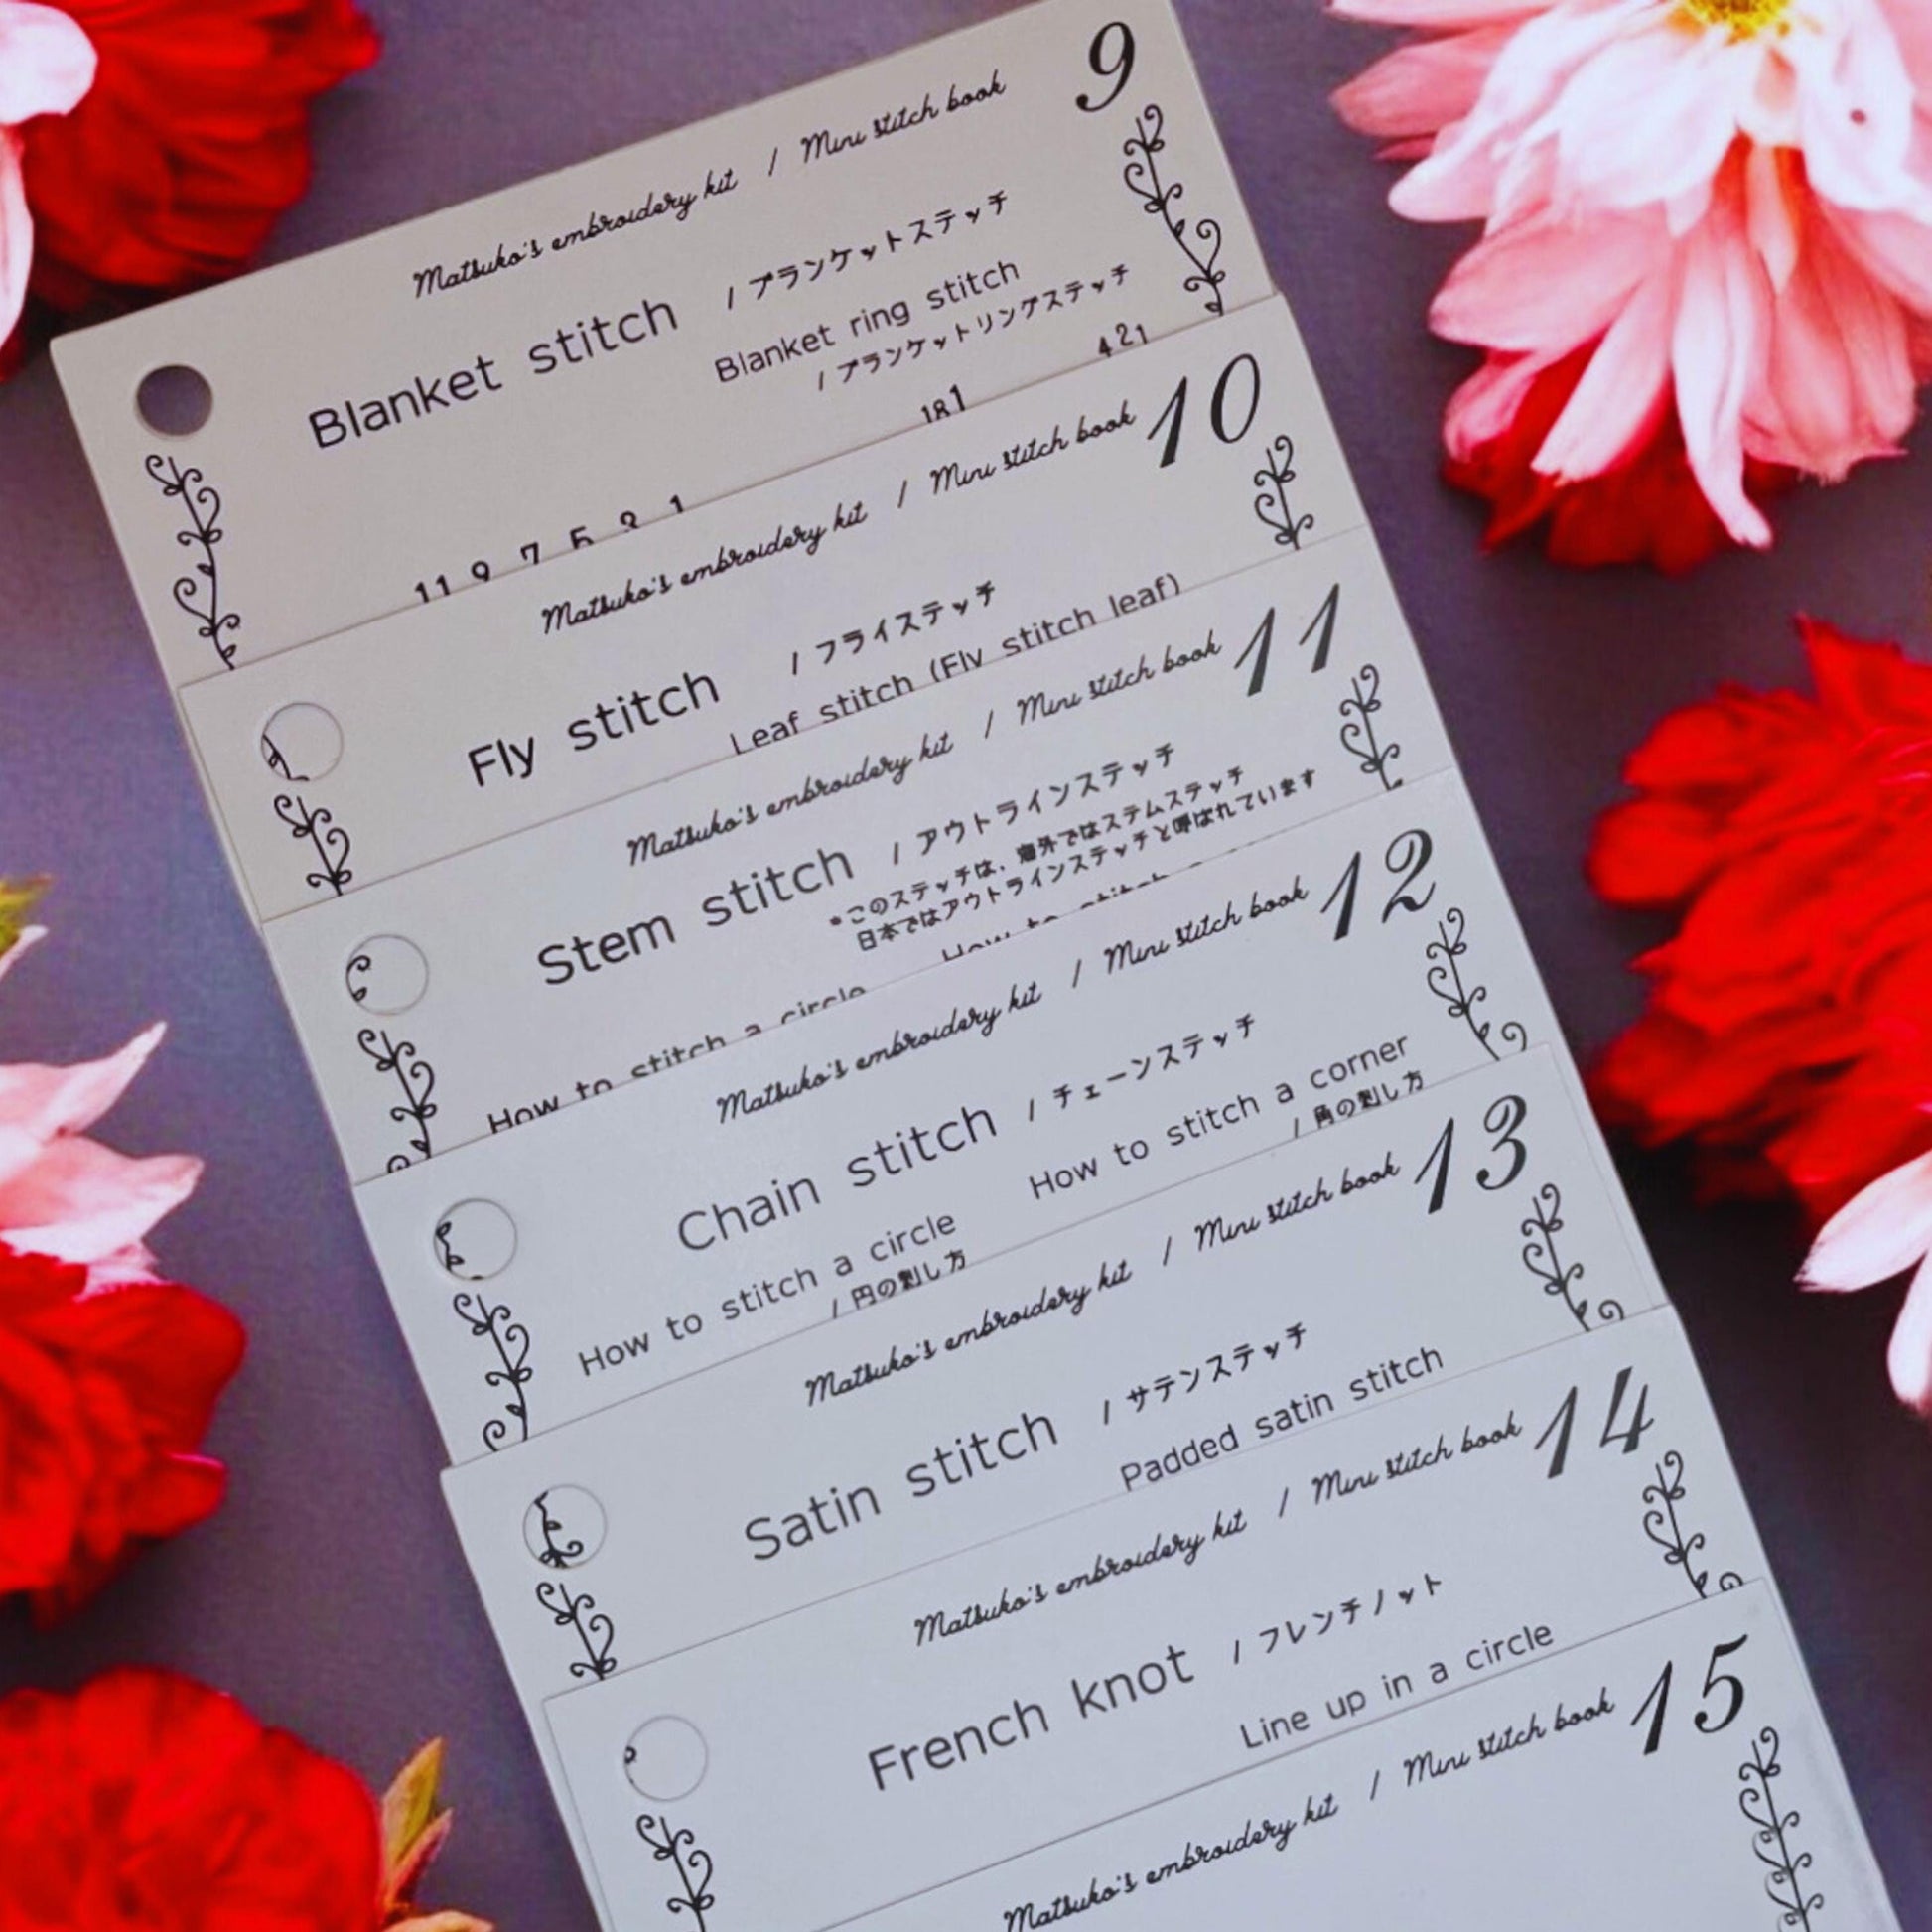 9
Matsuko's embroidery kit / Mini stitch book
Blanket stitch / ブランケットステッチ
Blanket ring stitch
/ ブランケットリングステッチ
421
181
11 9 7 5 3 1
10
Matsuko's embroidery kit / Mini stitch book
Fly stitch / フライステッチ
Leaf stitch (Fly stitch leaf)
11
Matsuko's embroidery kit / Mini stitch book
Stem stitch / アウトラインステッチ
*このステッチは、海外ではステムステッチ
日本ではアウトラインステッチと呼ばれています
How to stitch
How to stitch a circle
12
Matsuko's embroidery kit / Mini stitch book
Chain stitch / チェーンステッチ
How to stitch a corner
/ 角の刺し方
How to stitch a circle
/ 円の刺し方
13
Matsuko's embroidery kit / Mini stitch book
Satin stitch / サテンステッチ
Padded satin stitch
14
Matsuko's embroidery kit / Mini stitch book
French knot / フレンチノット
Line up in a circle
15
Matsuko's embroidery kit / Mini stitch book